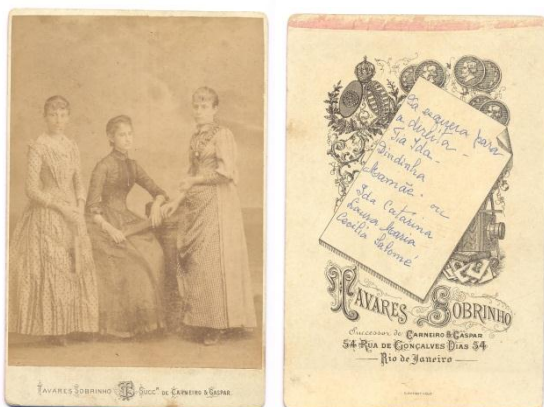 TAVARES SOBRINHO TS SUCC.ᴿ DE CARNEIRO & GASPAR.
Da esquerda para
a direita -
Tia Ida -
Dindinha
Mamãe - ou
Ida Catarina
Laura Maria
Cecilia Salomé
TAVARES SOBRINHO
Successor de CARNEIRO & GASPAR
54 RUA DE GONÇALVES DIAS 54
Rio de Janeiro